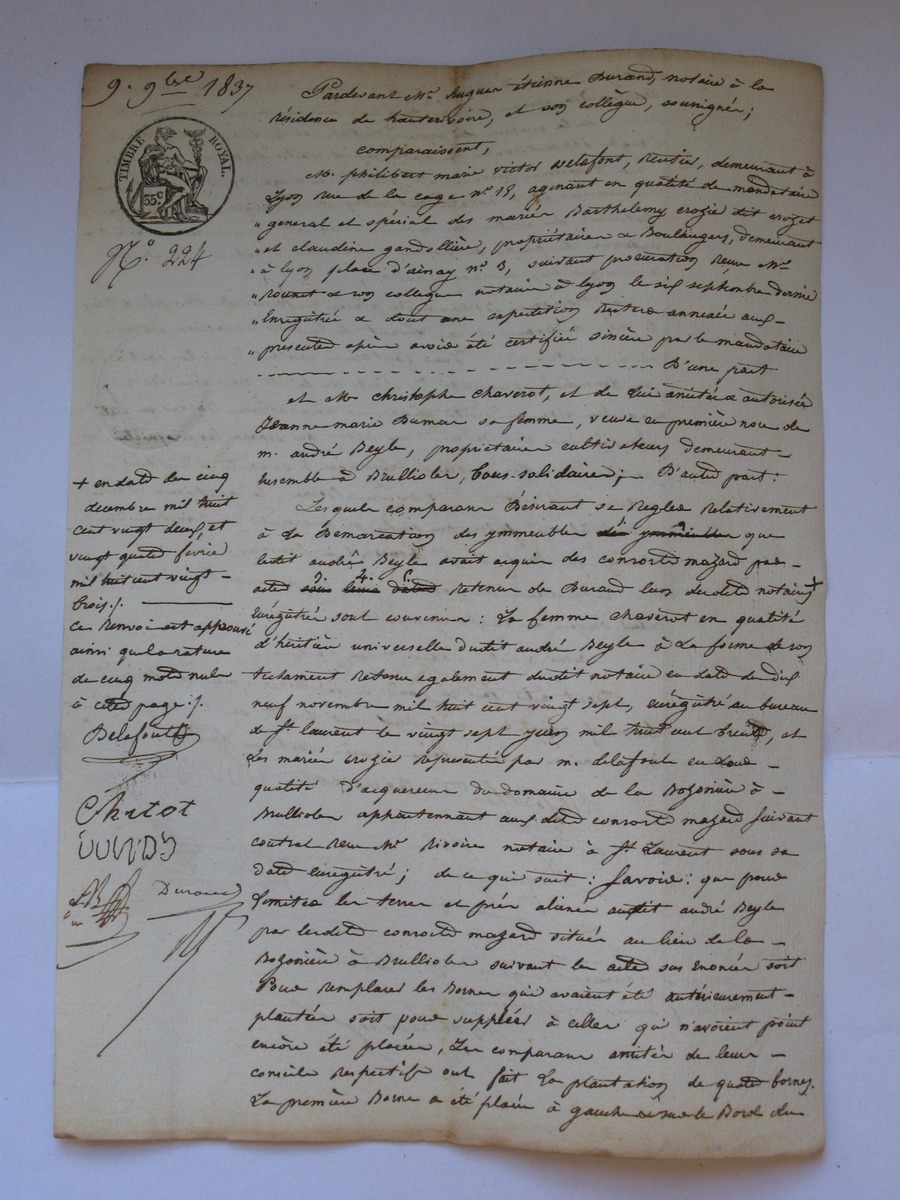 9. 9bre 1837
TIMBRE ROYAL.
35c
N° 224
Pardevant Me. hugues étienne Durand, notaire à la
résidence de hauterivoire, et son collègue, soussignés;
comparaissent,
M. philibert marie victor Delafont, Rentier, demeurant à
Lyon rue de la cage n° 18, agissant en qualité de mandataire
general et spécial des mariés Barthelemy crozie dit crozet
et claudine gandollière, propriétaires & Boulangers, demeurant
à Lyon place d'ainay n° 3, suivant procuration reçue Me.
& son collegue notaire à Lyon le six septembre dernier
Enregistrée & dont une expédition Restera annexée aux
présentes après avoir été certifiée sincère par le mandataire
D'une part
et M. Christophe Chaverot, et de lui assistée & autorisée
Jeanne marie Dumas sa femme, veuve en première noce de
m. andré Beyle, propriétaires cultivateurs demeurant
Ensemble à Brulliole, tous solidaires; D'autre part:
Lesquels comparans Désirant se Regler Relativement
à la Démarcation des ymmeubles des ymmeubles que
ledit andré Beyle avait acquis des consorts mazard par
actes Retenus de Durand l'un desdits notaires +
Enregistrés sont convenus: La femme chaverot en qualité
d'héritière universelle dudit andré Beyle à la forme de son
testament Retenu egalement dudit notaire en date du dix
neuf novembre mil huit cent vingt sept, enregistré au bureau
de St. laurent le vingt sept juin mil huit cent trente, et
Les mariés crozie representés par m. delafont en leur
qualité d'acquereurs du domaine de la Bozonière à
Brulliole appartennant auxdits consorts mazard suivant
contrat Reçu Me Rivoire notaire à St. Laurent sous sa
date enregistré; de ce qui suit: Savoir: que pour
Limiter les terres et prés aliénés audit andré Beyle
par lesdits consorts mazard situés au lieu de la
Bozonière à Brulliole suivant les actes sus énoncés soit
Pour remplacer les Bornes qui avaient été antérieurement
plantées soit pour suppléer à celles qui n'avoient point
encore été placées, Les comparans assistés de leurs
conseils Respectifs ont fait la plantation de quatre bornes.
La première Borne a été placée à gauche & sur le Bord du
+ en date des cinq
decembre mil huit
cent vingt deux, et
vingt quatre fevrier
mil huit cent vingt
trois./.
Ce Renvoi est approuvé
ainsi que la rature
de cinq mots nuls
à cette page./.
Delafont
Durand